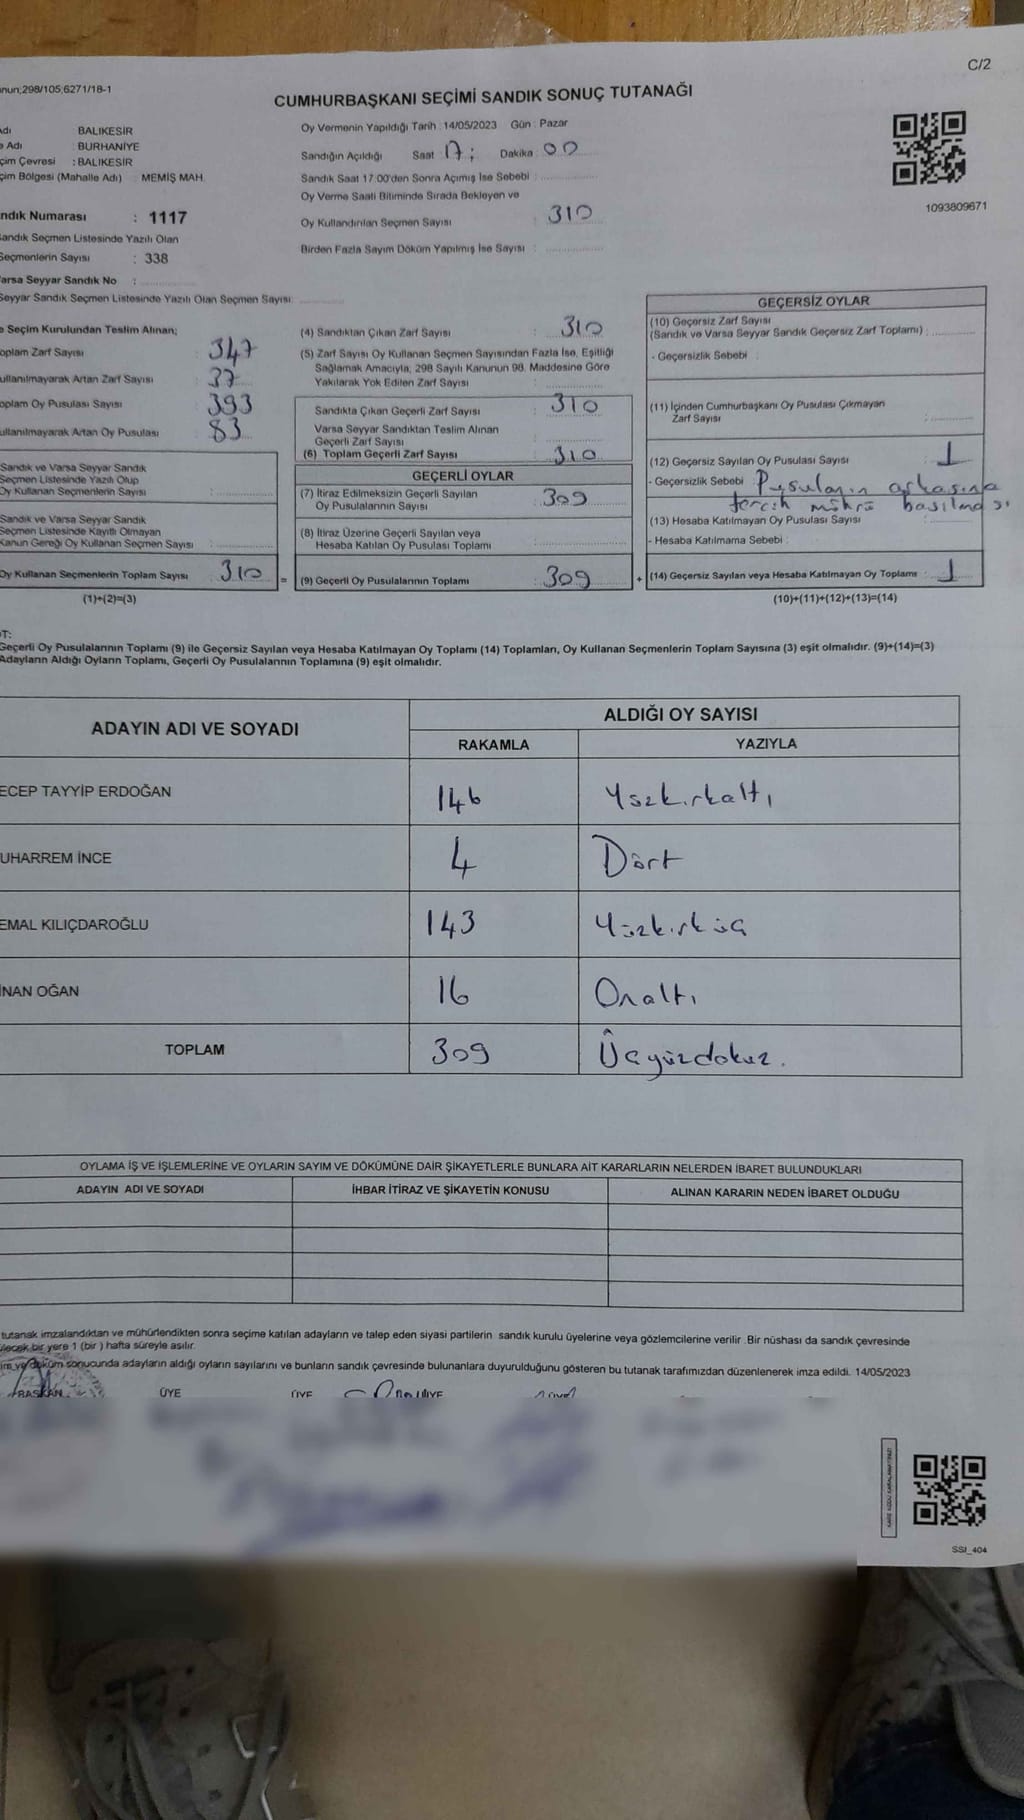 C/2
nun;298/105;6271/18-1
CUMHURBAŞKANI SEÇİMİ SANDIK SONUÇ TUTANAĞI
dı BALIKESİR
Adı : BURHANİYE
çim Çevresi : BALIKESİR
çim Bölgesi (Mahalle Adı) : MEMİŞ MAH.
ndık Numarası : 1117
andık Seçmen Listesinde Yazılı Olan
Seçmenlerin Sayısı : 338
arsa Seyyar Sandık No :
Seyyar Sandık Seçmen Listesinde Yazılı Olan Seçmen Sayısı:
Oy Vermenin Yapıldığı Tarih : 14/05/2023 Gün : Pazar
Sandığın Açıldığı Saat 17 : Dakika : 00
Sandık Saat 17:00'den Sonra Açımış İse Sebebi :
Oy Verme Saati Bitiminde Sırada Bekleyen ve
Oy Kullandırılan Seçmen Sayısı : 310
Birden Fazla Sayım Döküm Yapılmış İse Sayısı :
1093809671
e Seçim Kurulundan Teslim Alınan;
oplam Zarf Sayısı : 347
ullanılmayarak Artan Zarf Sayısı : 37
oplam Oy Pusulası Sayısı : 393
ullanılmayarak Artan Oy Pusulası : 83
Sandık ve Varsa Seyyar Sandık
Seçmen Listesinde Yazılı Olup
Oy Kullanan Seçmenlerin Sayısı :
Sandık ve Varsa Seyyar Sandık
Seçmen Listesinde Kayıtlı Olmayan
Kanun Gereği Oy Kullanan Seçmen Sayısı :
Oy Kullanan Seçmenlerin Toplam Sayısı : 310 =
(1)+(2)=(3)
(4) Sandıktan Çıkan Zarf Sayısı : 310
(5) Zarf Sayısı Oy Kullanan Seçmen Sayısından Fazla İse, Eşitliği
Sağlamak Amacıyla, 298 Sayılı Kanunun 98. Maddesine Göre
Yakılarak Yok Edilen Zarf Sayısı :
Sandıkta Çıkan Geçerli Zarf Sayısı : 310
Varsa Seyyar Sandıktan Teslim Alınan
Geçerli Zarf Sayısı :
(6) Toplam Geçerli Zarf Sayısı : 310
GEÇERLİ OYLAR
(7) İtiraz Edilmeksizin Geçerli Sayılan
Oy Pusulalarının Sayısı : 309
(8) İtiraz Üzerine Geçerli Sayılan veya
Hesaba Katılan Oy Pusulası Toplamı :
(9) Geçerli Oy Pusulalarının Toplamı : 309 +
GEÇERSİZ OYLAR
(10) Geçersiz Zarf Sayısı
(Sandık ve Varsa Seyyar Sandık Geçersiz Zarf Toplamı) :
- Geçersizlik Sebebi :
(11) İçinden Cumhurbaşkanı Oy Pusulası Çıkmayan
Zarf Sayısı :
(12) Geçersiz Sayılan Oy Pusulası Sayısı : 1
- Geçersizlik Sebebi : Pusulanın arkasına
tercih mührü basılması
(13) Hesaba Katılmayan Oy Pusulası Sayısı :
- Hesaba Katılmama Sebebi :
(14) Geçersiz Sayılan veya Hesaba Katılmayan Oy Toplamı : 1
(10)+(11)+(12)+(13)=(14)
OT:
Geçerli Oy Pusulalarının Toplamı (9) ile Geçersiz Sayılan veya Hesaba Katılmayan Oy Toplamı (14) Toplamları, Oy Kullanan Seçmenlerin Toplam Sayısına (3) eşit olmalıdır. (9)+(14)=(3)
Adayların Aldığı Oyların Toplamı, Geçerli Oy Pusulalarının Toplamına (9) eşit olmalıdır.
ADAYIN ADI VE SOYADI ALDIĞI OY SAYISI
RAKAMLA YAZIYLA
ECEP TAYYİP ERDOĞAN 146 Yüzkırkaltı
UHARREM İNCE 4 Dört
EMAL KILIÇDAROĞLU 143 Yüzkırküç
İNAN OĞAN 16 Onaltı
TOPLAM 309 Üçyüzdokuz.
OYLAMA İŞ VE İŞLEMLERİNE VE OYLARIN SAYIM VE DÖKÜMÜNE DAİR ŞİKAYETLERLE BUNLARA AİT KARARLARIN NELERDEN İBARET BULUNDUKLARI
ADAYIN ADI VE SOYADI İHBAR İTİRAZ VE ŞİKAYETİN KONUSU ALINAN KARARIN NEDEN İBARET OLDUĞU
tutanak imzalandıktan ve mühürlendikten sonra seçime katılan adayların ve talep eden siyasi partilerin sandık kurulu üyelerine veya gözlemcilerine verilir. Bir nüshası da sandık çevresinde
ilecek bir yere 1 (bir ) hafta süreyle asılır.
ım ve döküm sonucunda adayların aldığı oyların sayılarını ve bunların sandık çevresinde bulunanlara duyurulduğunu gösteren bu tutanak tarafımızdan düzenlenerek imza edildi. 14/05/2023
BAŞKAN ÜYE ÜYE ÜYE
SSI_404